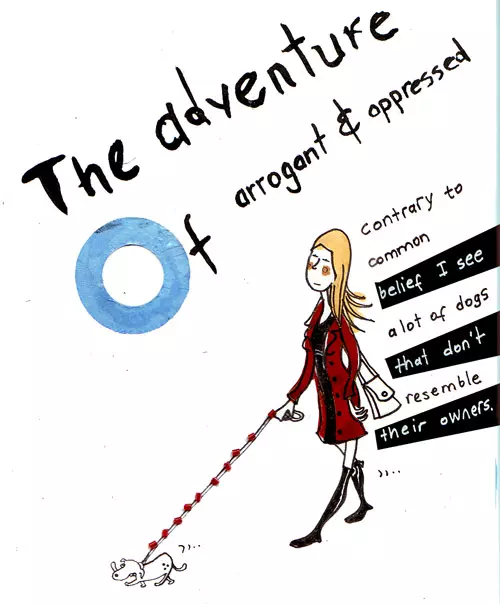 The adventure
Of arrogant & oppressed
contrary to
common
belief I see
a lot of dogs
that don't
resemble
their owners.